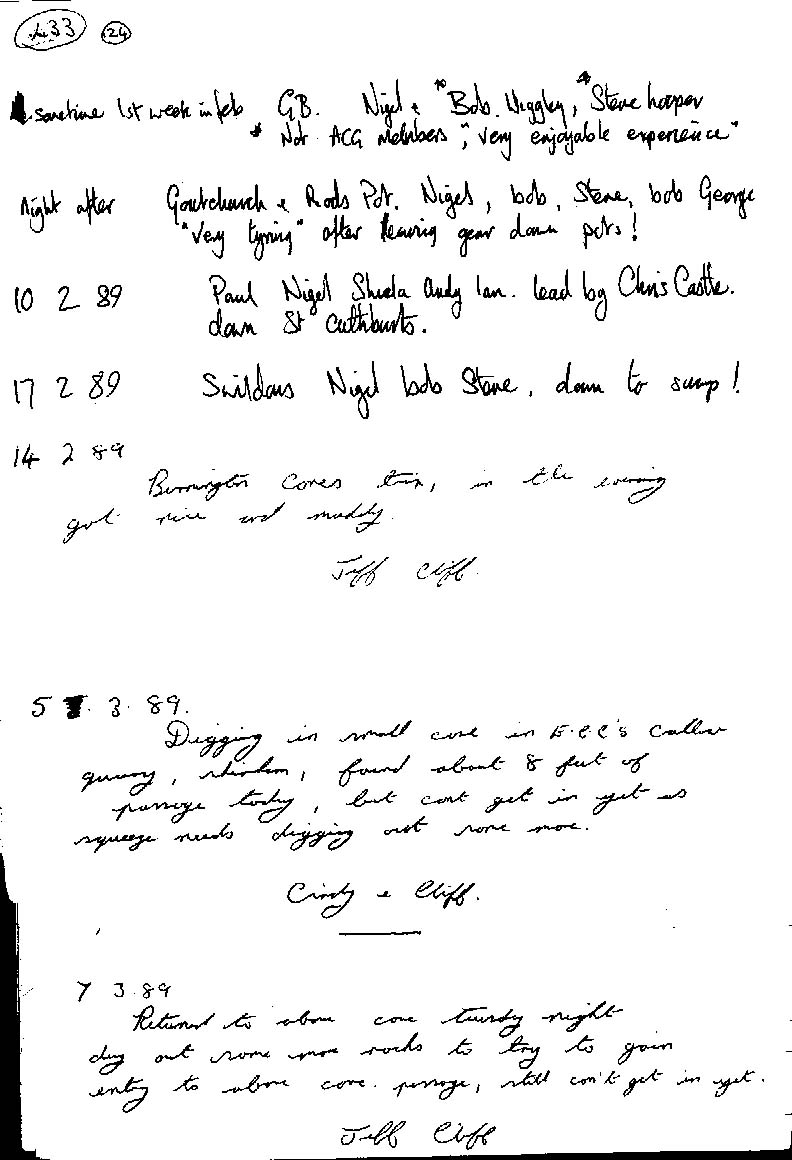 33 24
sometime 1st week in feb GB. Nigel & * Bob Weggley, * Steve hooper
* Not ACG Members, "very enjoyable experience"
Night after Goatchurch & Rods Pot. Nigel, bob, Steve, bob George
"Very tyring" after leaving gear down pots!
10 2 89 Paul Nigel Sheela Andy Ian. lead by Chris Castle.
down St Cuthburts.
17 2 89 Swildons Nigel bob Steve, down to sump!
14 2 89
Burrington Caves trip, in the evening
got nice and muddy.
Jeff Cliff.
5 3. 89.
Digging in small cave in E.C.C's
quarry, found about 8 feet of
passage today, but cant get in yet as
squeeze needs digging out some more.
Cindy & Cliff.
7 3.89
Returned to above cave night
dug out some more rocks to try to gain
entry to above cave. passage, still can't get in yet.
Jeff Cliff